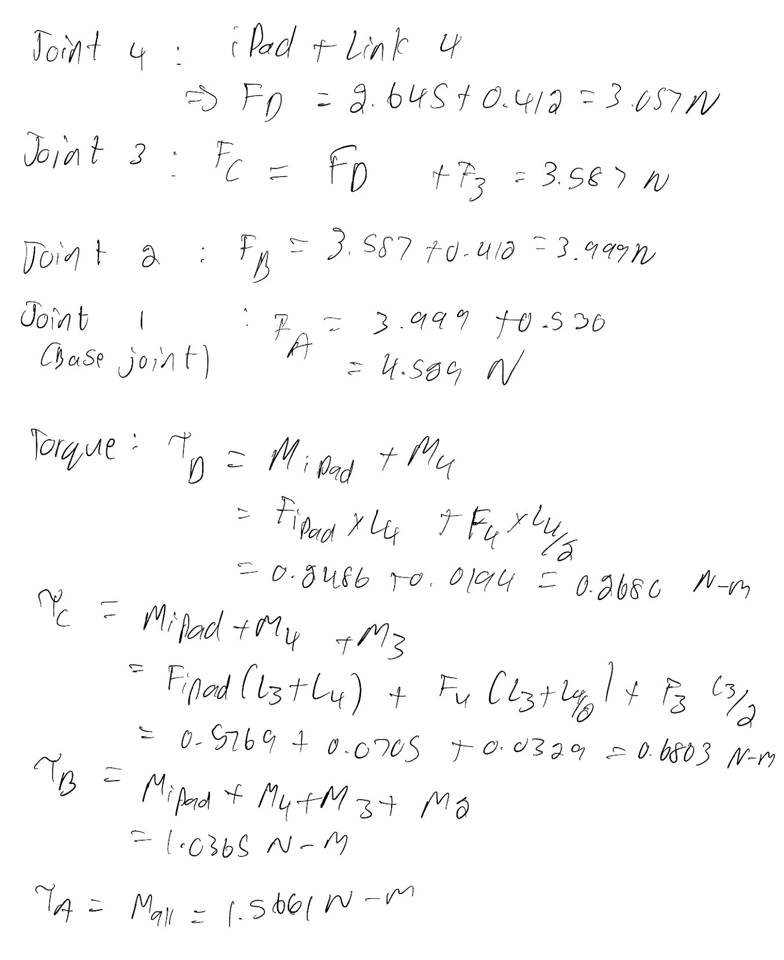 Joint 4 : iPad + Link 4
⇒ F_D = 2.645 + 0.412 = 3.057 N
Joint 3 : F_C = F_D + F_3 = 3.587 N
Joint 2 : F_B = 3.587 + 0.412 = 3.999 N
Joint 1 : F_A = 3.999 + 0.530
(Base joint) = 4.529 N
Torque : τ_D = M_iPad + M_4
= F_iPad × L_4 + F_4 × L_4/2
= 0.2486 + 0.0194 = 0.2680 N-m
τ_C = M_iPad + M_4 + M_3
= F_iPad (L_3 + L_4) + F_4 (L_3 + L_4/2) + F_3 L_3/2
= 0.5769 + 0.0705 + 0.0329 = 0.6803 N-m
τ_B = M_iPad + M_4 + M_3 + M_2
= 1.0365 N-M
τ_A = M_all = 1.5661 N-m